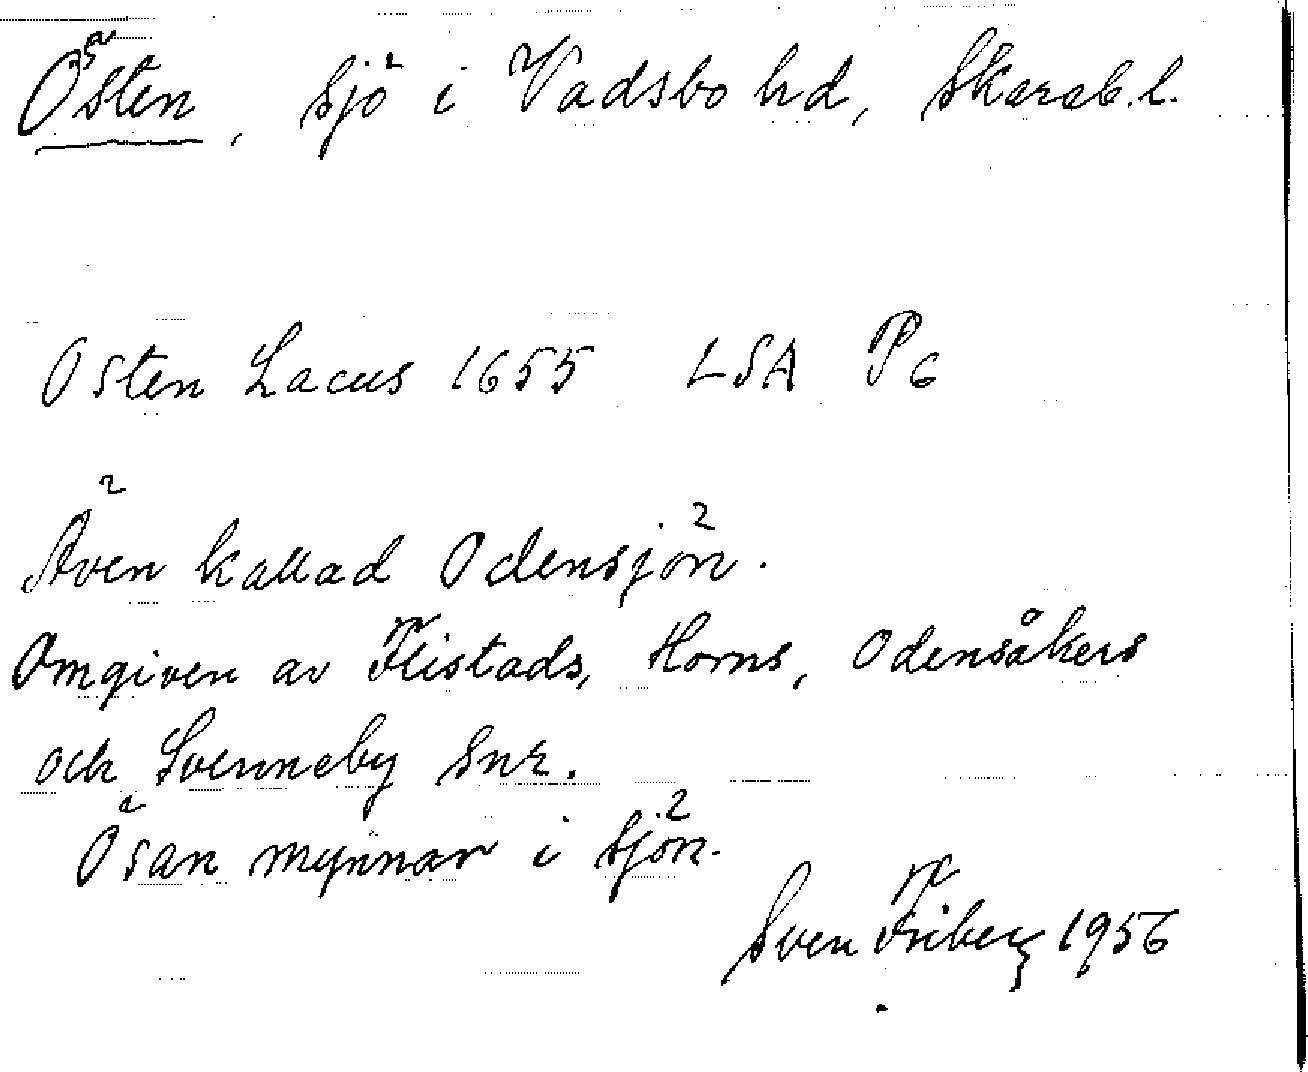 Östen, sjö i Vadsbo hd, Skarab.l.
Osten Lacus 1655 LSA P6
Även kallad Odensjön.
Omgiven av Flistads, Horns, Odensåkers
och Svenneby snr.
Ösan mynnar i sjön.
Sven Friberg 1956